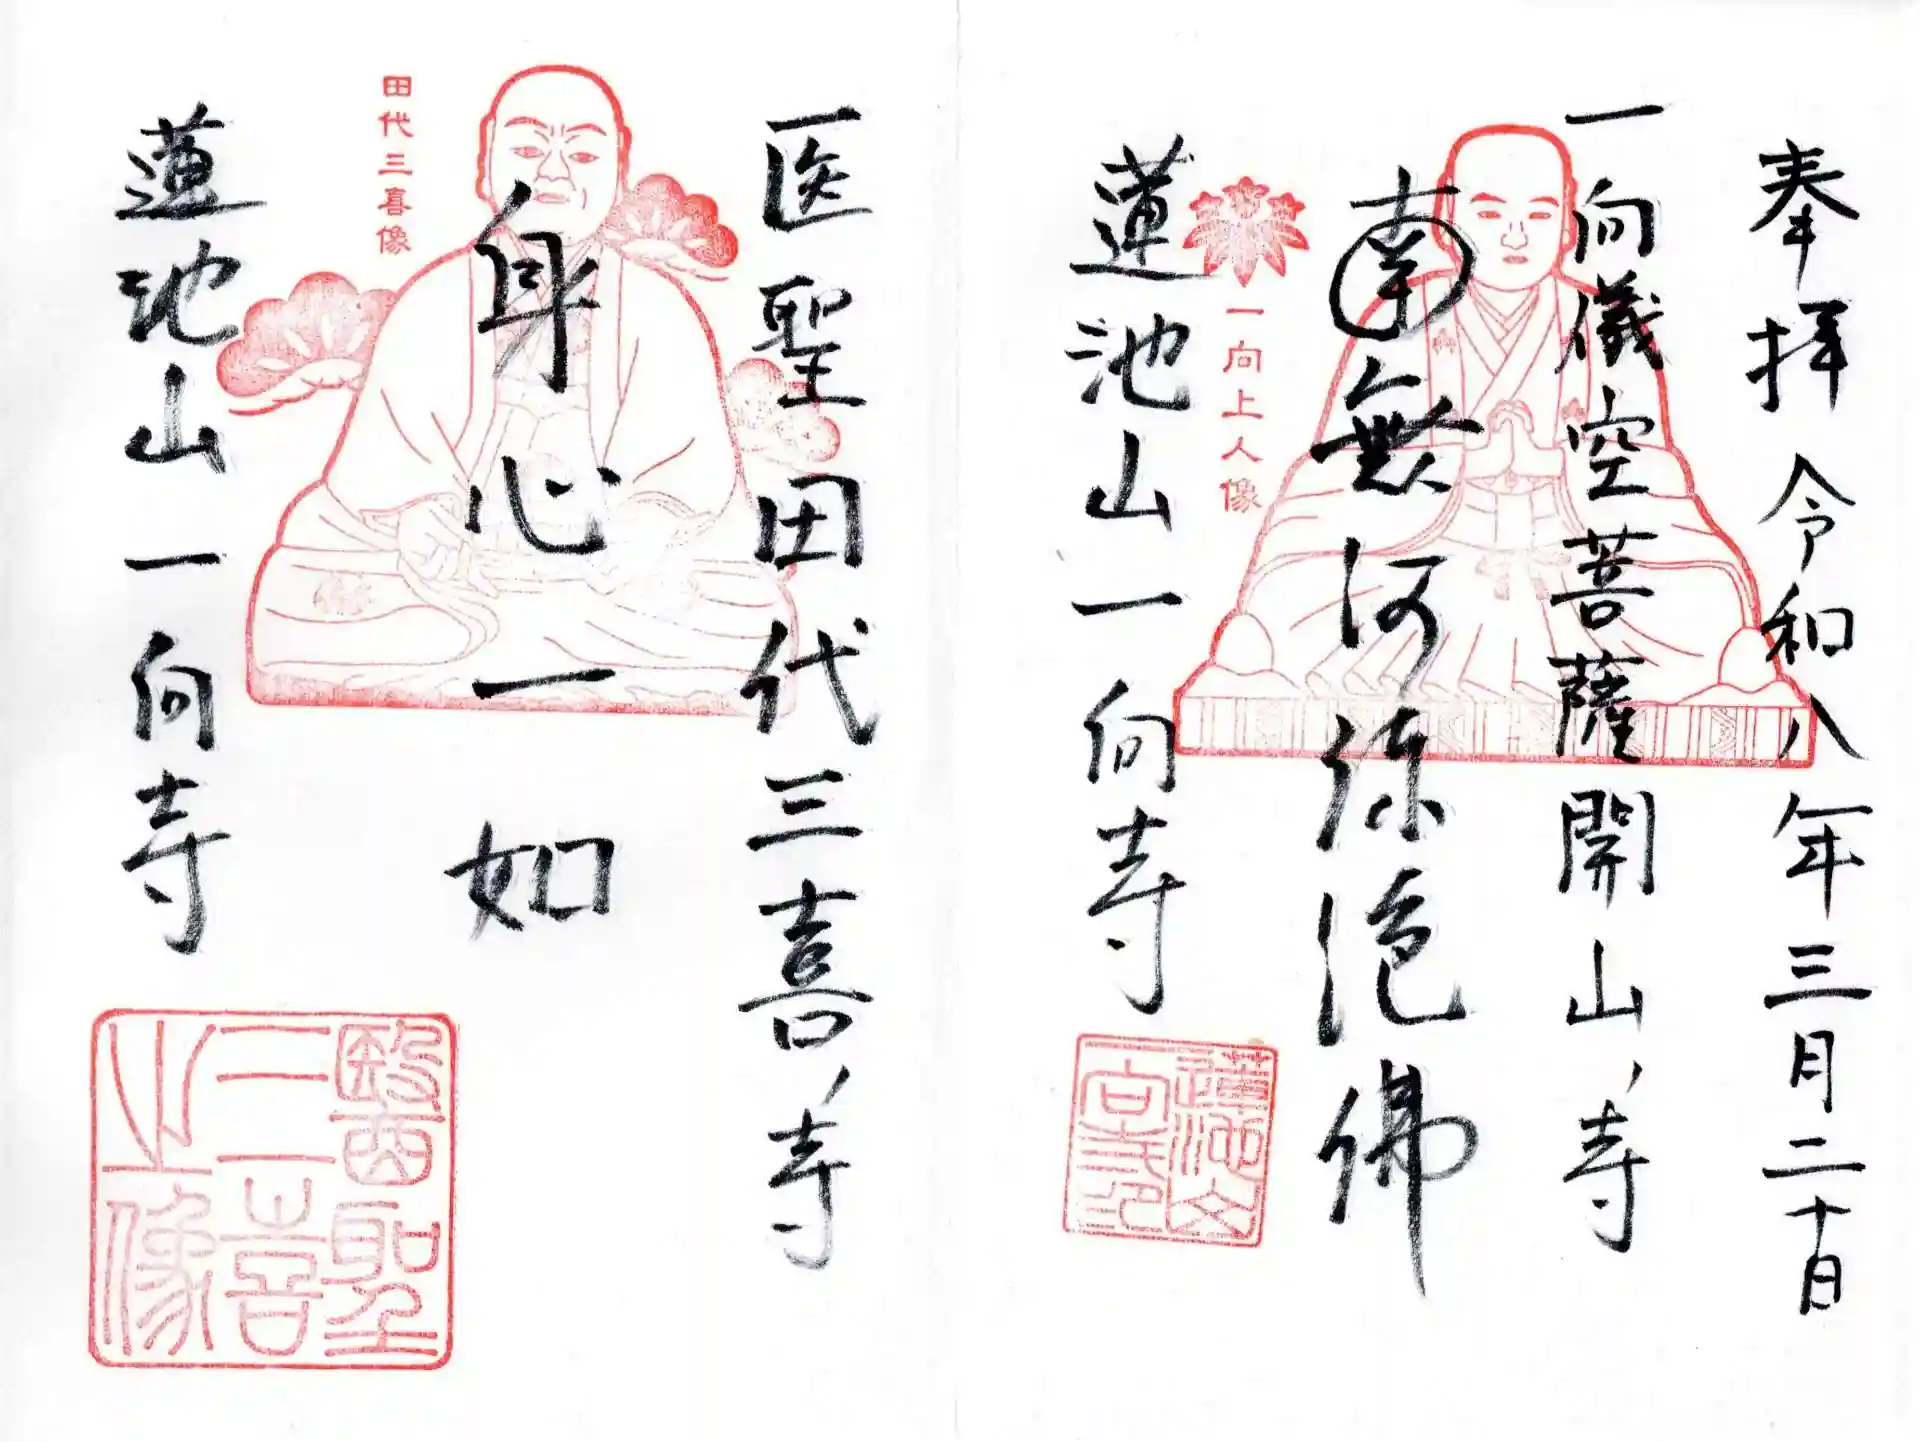 奉拝 令和八年三月二十日
一向儀空菩薩開山ノ寺
南無阿弥陀佛
一向上人像
蓮池山一向寺
蓮池山
一向寺印
医聖田代三喜ノ寺
身心一如
田代三喜像
蓮池山一向寺
醫聖
三喜
之像